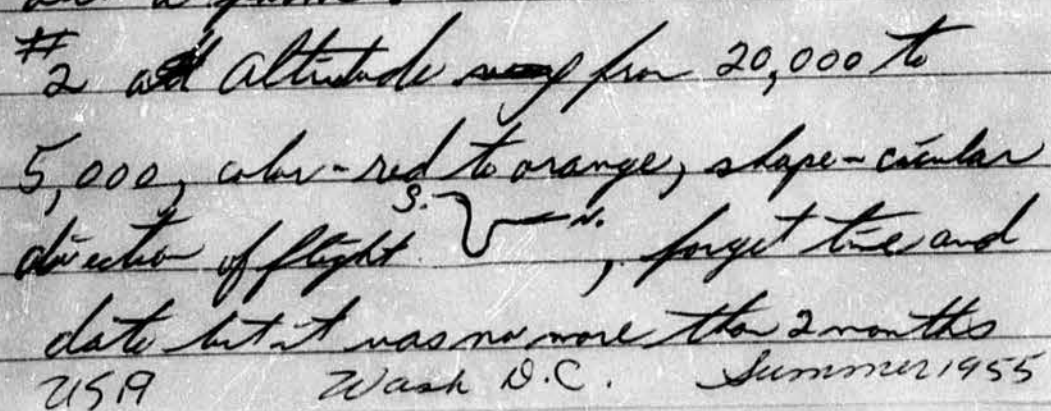 #2 altitude from 20,000 to
5,000, color-red to orange, shape-circular
direction of flight S. N., forget time and
date but it was no more than 2 months
USA Wash D.C. Summer 1955